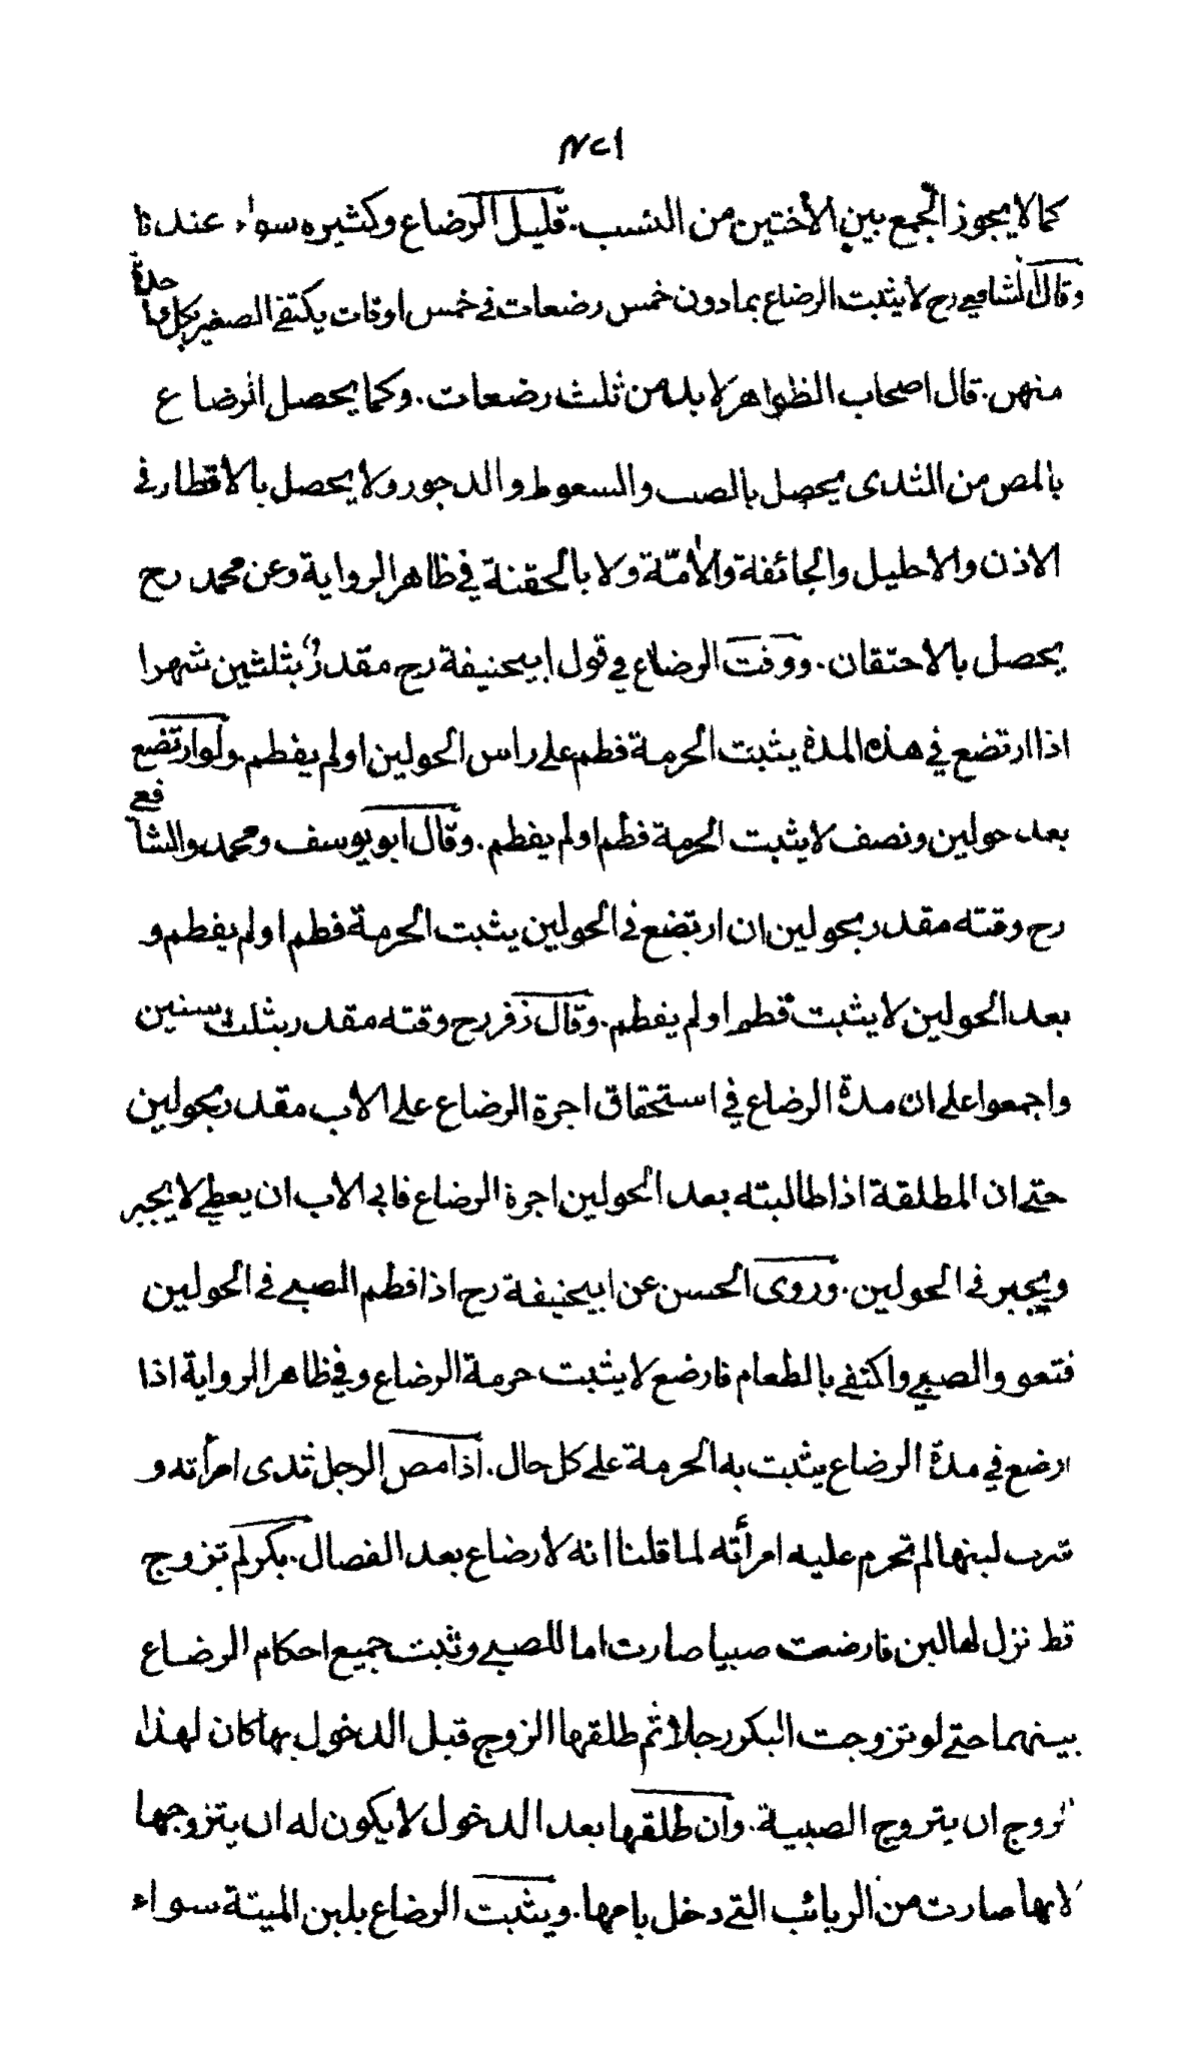 ٤٢١
كما لا يجوز الجمع بين الأختين من النسب. قليل الرضاع وكثيره سواء عندنا
وقال الشافعي رح لا يثبت الرضاع بما دون خمس رضعات في خمس اوقات يكتفي الصغير بكل واحدة
منهن. قال اصحاب الظواهر لا بد من ثلث رضعات. وكما يحصل الرضاع
بالمص من الثدى يحصل بالصب والسعوط والدجور ولا يحصل بالاقطار في
الاذن والاحليل والجائفة والأمّة ولا بالحقنة في ظاهر الرواية وعن محمد رح
يحصل بالاحتقان. ووقت الرضاع في قول ابيحنيفة رح مقدر بثلثين شهرا
اذا ارتضع في هذه المدة يثبت الحرمة فطم على راس الحولين او لم يفطم. ولو ارتضع
بعد حولين ونصف لا يثبت الحرمة فطم او لم يفطم. وقال ابو يوسف ومحمد والشافعي
رح وقته مقدر بحولين ان ارتضع في الحولين يثبت الحرمة فطم او لم يفطم و
بعد الحولين لا يثبت فطم او لم يفطم. وقال زفر رح وقته مقدر بثلث سنين
واجمعوا على ان مدة الرضاع في استحقاق اجرة الرضاع على الاب مقدر بحولين
حتى ان المطلقة اذا طالبته بعد الحولين اجرة الرضاع فابى الاب ان يعطي لا يجبر
ويجبر في الحولين. وروى الحسن عن ابيحنيفة رح اذا فطم الصبي في الحولين
فتعود الصبي واكتفى بالطعام فارضع لا يثبت حرمة الرضاع وفي ظاهر الرواية اذا
ارضع في مدة الرضاع يثبت به الحرمة على كل حال. اذا مص الرجل ثدى امرأته و
شرب لبنها لم تحرم عليه امرأته لما قلنا انه لا رضاع بعد الفصال. بكر لم تزوج
قط نزل لها لبن فارضعت صبيا صارت اما للصبي وثبت جميع احكام الرضاع
بينهما حتى لو تزوجت البكر رجلا ثم طلقها الزوج قبل الدخول بها كان لهذا
الزوج ان يتزوج الصبية. وان طلقها بعد الدخول لا يكون له ان يتزوجها
لانها صارت من الربائب التي دخل بامها. ويثبت الرضاع بلبن الميتة سواء